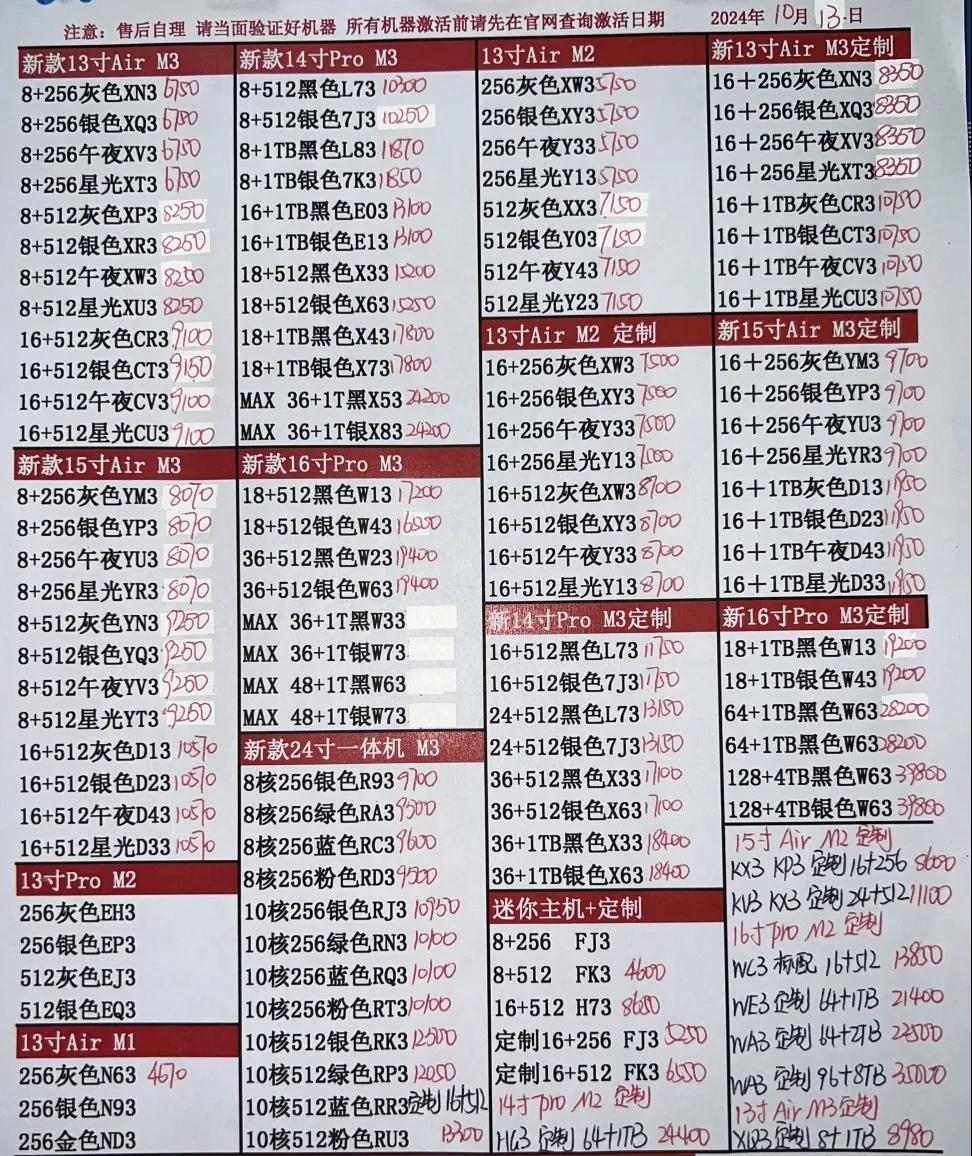 注意：售后自理 请当面验证好机器 所有机器激活前请先在官网查询激活日期 2024年10月13日
新款13寸Air M3
8+256灰色XN3 6750
8+256银色XQ3 6750
8+256午夜XV3 6750
8+256星光XT3 6750
8+512灰色XP3 8250
8+512银色XR3 8250
8+512午夜XW3 8250
8+512星光XU3 8250
16+512灰色CR3 9100
16+512银色CT3 9150
16+512午夜CV3 9100
16+512星光CU3 9100
新款15寸Air M3
8+256灰色YM3 8070
8+256银色YP3 8070
8+256午夜YU3 8070
8+256星光YR3 8070
8+512灰色YN3 9250
8+512银色YQ3 9250
8+512午夜YV3 9250
8+512星光YT3 9250
16+512灰色D13 10570
16+512银色D23 10570
16+512午夜D43 10570
16+512星光D33 10570
13寸Pro M2
256灰色EH3
256银色EP3
512灰色EJ3
512银色EQ3
13寸Air M1
256灰色N63 4670
256银色N93
256金色ND3
新款14寸Pro M3
8+512黑色L73 10300
8+512银色7J3 10250
8+1TB黑色L83 11870
8+1TB银色7K3 11850
16+1TB黑色E03 13100
16+1TB银色E13 13100
18+512黑色X33 15200
18+512银色X63 15250
18+1TB黑色X43 17800
18+1TB银色X73 17800
MAX 36+1T黑X53 24200
MAX 36+1T银X83 24200
新款16寸Pro M3
18+512黑色W13 17200
18+512银色W43
36+512黑色W23 19400
36+512银色W63 19400
MAX 36+1T黑W33
MAX 36+1T银W73
MAX 48+1T黑W63
MAX 48+1T银W73
新款24寸一体机 M3
8核256银色R93 9700
8核256绿色RA3 9500
8核256蓝色RC3 9600
8核256粉色RD3 9500
10核256银色RJ3 10950
10核256绿色RN3 10100
10核256蓝色RQ3 10100
10核256粉色RT3 10100
10核512银色RK3 12500
10核512绿色RP3 12050
10核512蓝色RR3 定制 16+512
10核512粉色RU3 13300
13寸Air M2
256灰色XW3 5750
256银色XY3 5750
256午夜Y33 5750
256星光Y13 5750
512灰色XX3 7150
512银色Y03 7150
512午夜Y43 7150
512星光Y23 7150
13寸Air M2 定制
16+256灰色XW3 7500
16+256银色XY3 7500
16+256午夜Y33 7500
16+256星光Y13 7500
16+512灰色XW3 8700
16+512银色XY3 8700
16+512午夜Y33 8700
16+512星光Y13 8700
新14寸Pro M3定制
16+512黑色L73 11750
16+512银色7J3 11750
24+512黑色L73 13150
24+512银色7J3 13150
36+512黑色X33 17100
36+512银色X63 17100
36+1TB黑色X33 18400
36+1TB银色X63 18400
迷你主机+定制
8+256 FJ3
8+512 FK3 4600
16+512 H73 8650
定制16+256 FJ3 5250
定制16+512 FK3 6550
14寸 pro M2 定制
HG3 定制 64+1TB 24400
新13寸Air M3定制
16＋256灰色XN3 8350
16＋256银色XQ3 8350
16＋256午夜XV3 8350
16＋256星光XT3 8350
16＋1TB灰色CR3 10750
16＋1TB银色CT3 10750
16＋1TB午夜CV3 10750
16＋1TB星光CU3 10750
新15寸Air M3定制
16＋256灰色YM3 9700
16＋256银色YP3 9700
16＋256午夜YU3 9700
16＋256星光YR3 9700
16＋1TB灰色D13 11950
16＋1TB银色D23 11950
16＋1TB午夜D43 11950
16＋1TB星光D33 11950
新16寸Pro M3定制
18+1TB黑色W13 19200
18+1TB银色W43 19200
64+1TB黑色W63 28200
64+1TB黑色W63 28200
128+4TB黑色W63 39800
128+4TB银色W63 39800
15寸 Air M2 定制
KX3 KP3 定制 16+256 8600
KV3 KX3 定制 24+512 11100
16寸 pro M2 定制
WC3 标配 16+512 13850
WE3 定制 64+1TB 21400
WA3 定制 64+2TB 22500
WA3 定制 96+8TB 35000
13寸 Air M3定制
XQ3 定制 8+1TB 8980